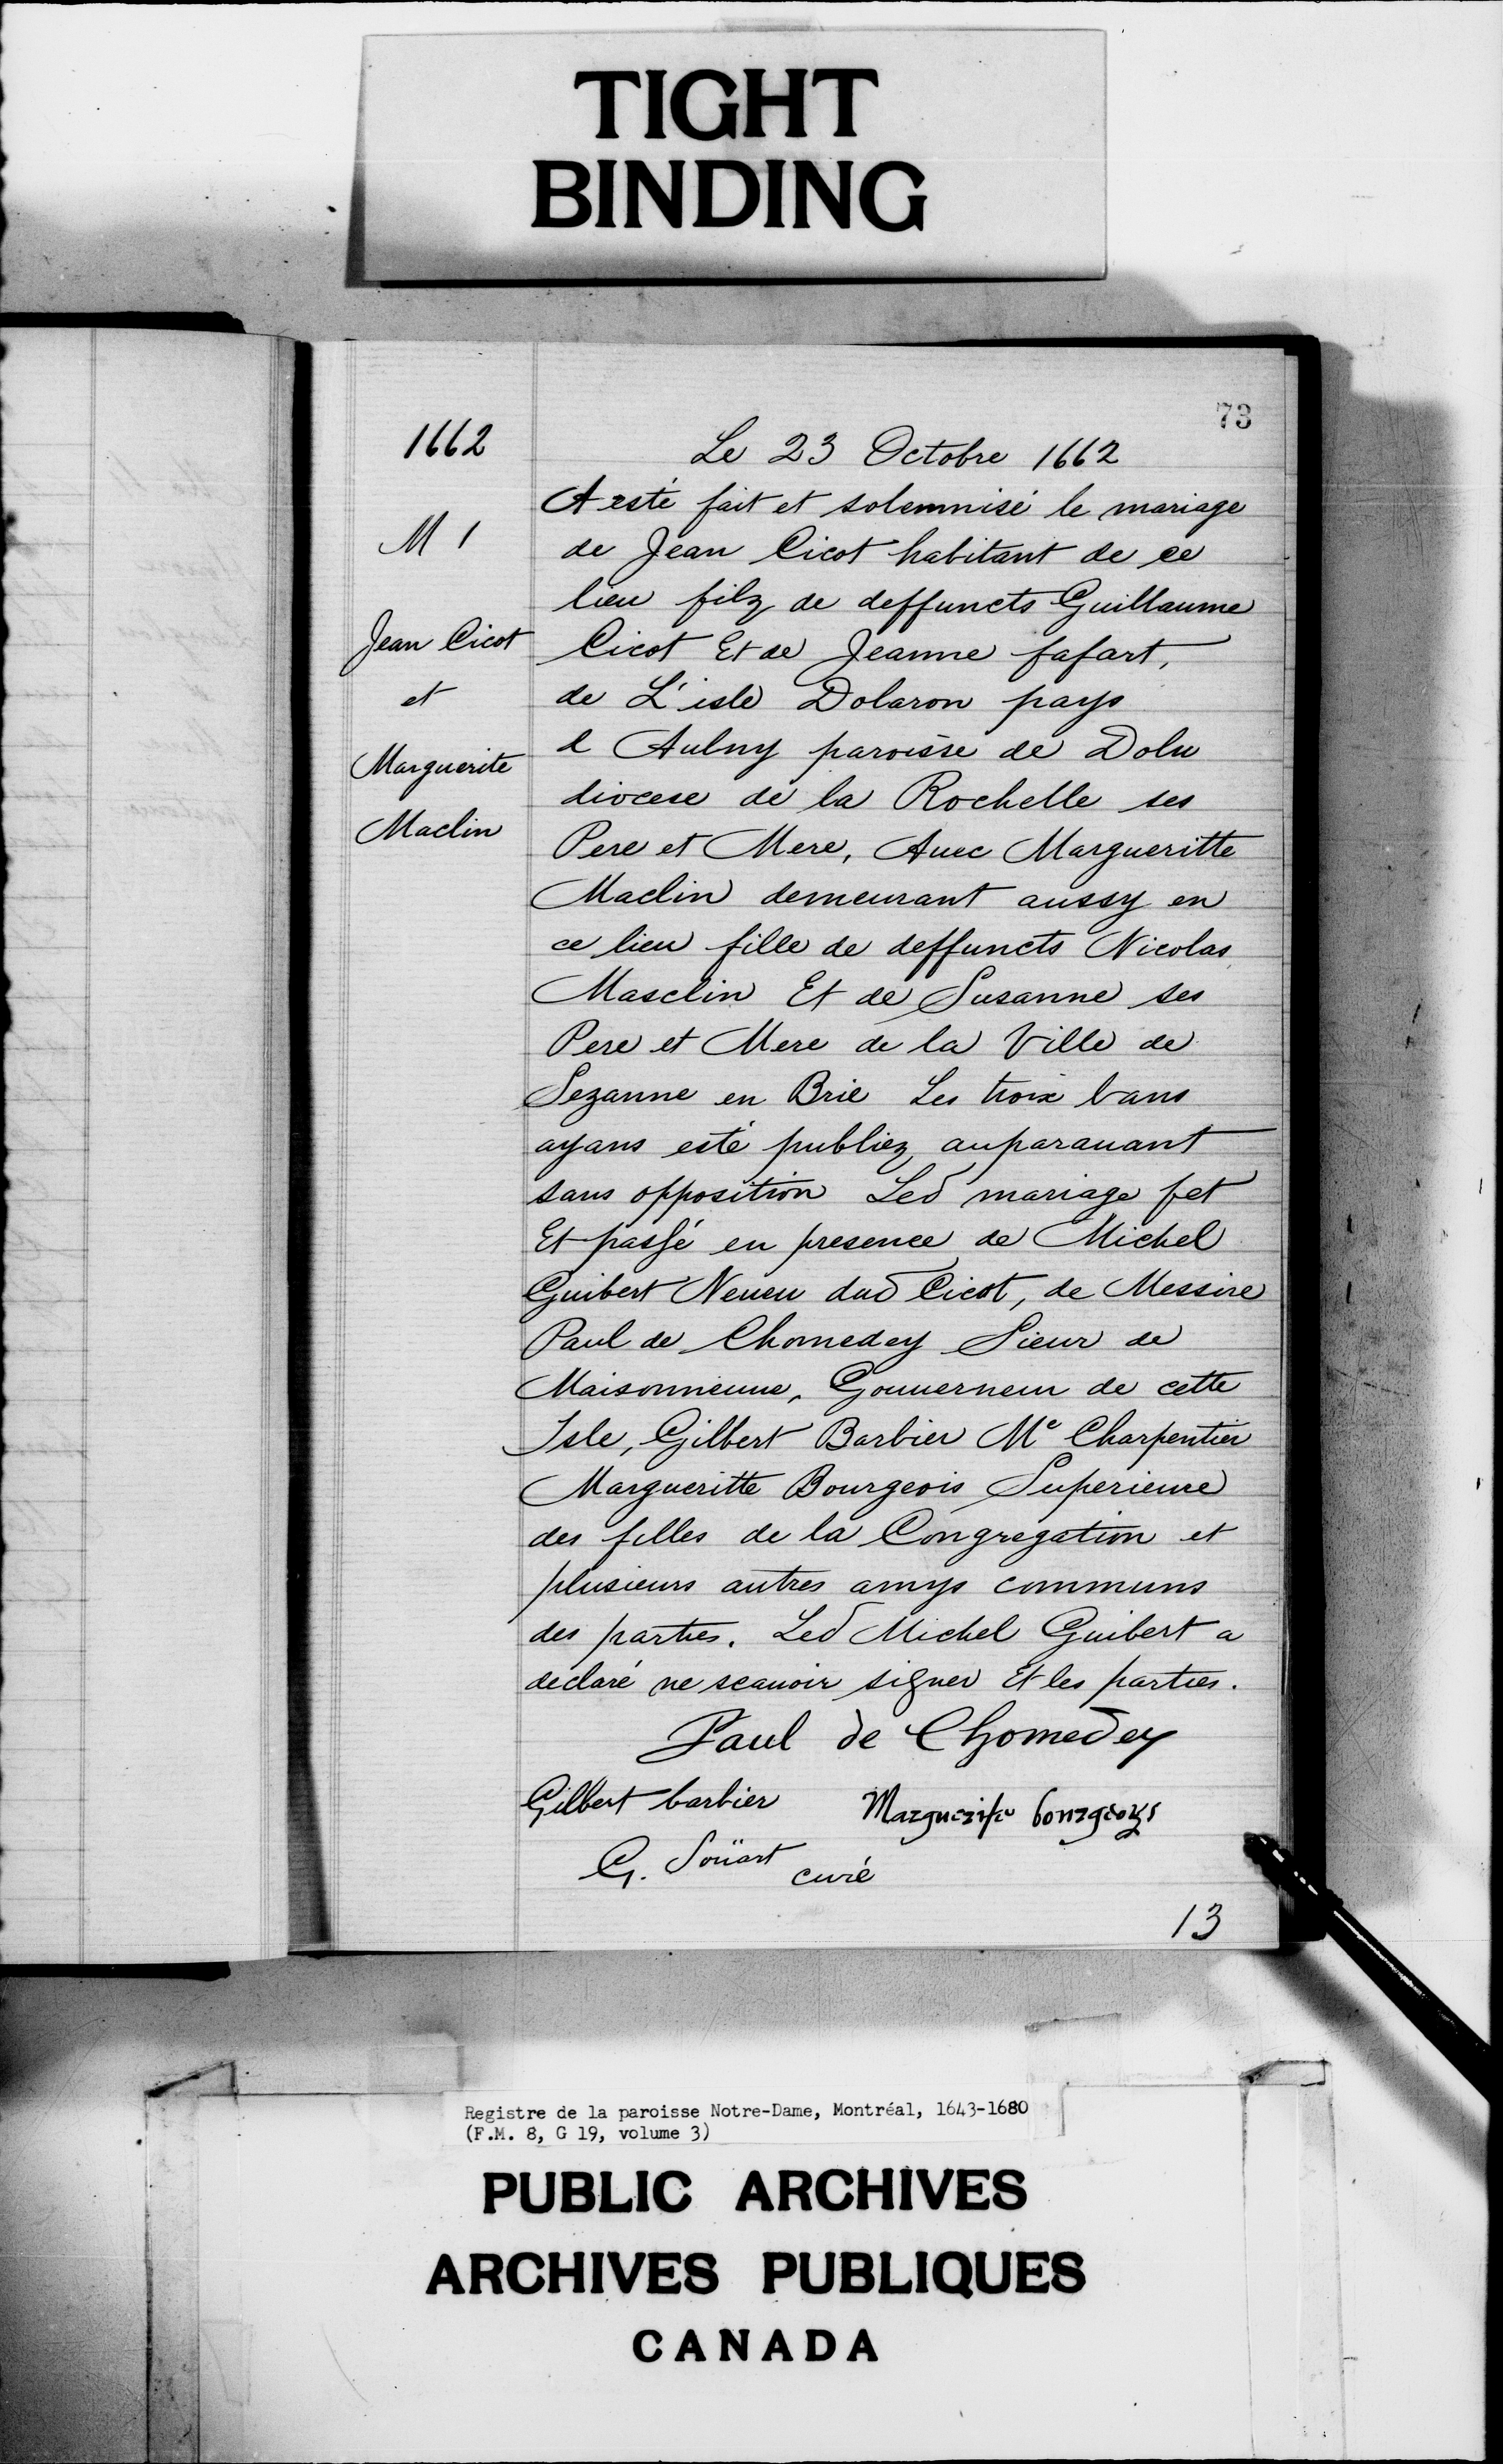 TIGHT
BINDING
73
1662
M 1
Jean Cicot
et
Marguerite
Maclin
Le 23 Octobre 1662
A esté fait et solemnisé le mariage
de Jean Cicot habitant de ce
lieu filz de deffuncts Guillaume
Cicot Et de Jeanne fafart,
de L'isle Dolaron pays
d Aulny paroisse de Dolu
diocese de la Rochelle ses
Pere et Mere, Auec Margueritte
Maclin demeurant aussy en
ce lieu fille de deffuncts Nicolas
Masclin Et de Susanne ses
Pere et Mere de la Ville de
Sezanne en Brie Les troix bans
ayans esté publiez auparauant
sans opposition Led mariage fet
Et passé en presence de Michel
Guibert Neueu dud Cicot, de Messire
Paul de Chomedey Sieur de
Maisonneuue, Gouuerneur de cette
Isle, Gilbert Barbier Me Charpentier
Margueritte Bourgeois Superieure
des filles de la Congregation et
plusieurs autres amys communs
des parties. Led Michel Guibert a
declaré ne scauoir signer Et les parties.
Paul de Chomedey
Gilbert barbier Marguerite bourgeoys
G. Soüart curé
13
Registre de la paroisse Notre-Dame, Montréal, 1643-1680
(F.M. 8, G 19, volume 3)
PUBLIC ARCHIVES
ARCHIVES PUBLIQUES
CANADA